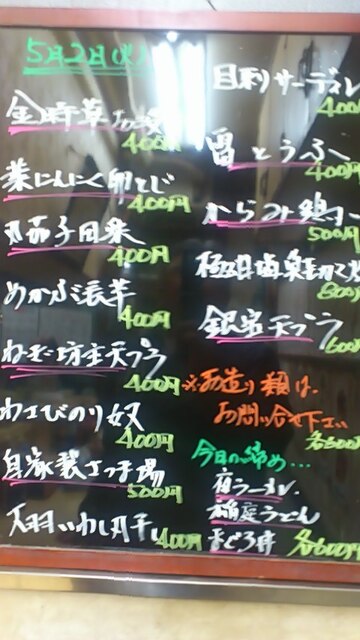 5月2日(火)
金時草おひたし
400円
葉にんにく卵とじ
400円
丸茄子田楽
400円
めかぶ長芋
400円
ねぎ坊主天プラ
400円
わさびのり奴
400円
自家製さつま揚
500円
いわし丸干し
400円
目刺サーディン
400
雷とうふ
400円
からみ鶏
500円
600円
銀宝天プラ
600
※お造り類は、
お問い合せ下さい
今日の締め…
夜ラーメン、
稲庭うどん
各600円